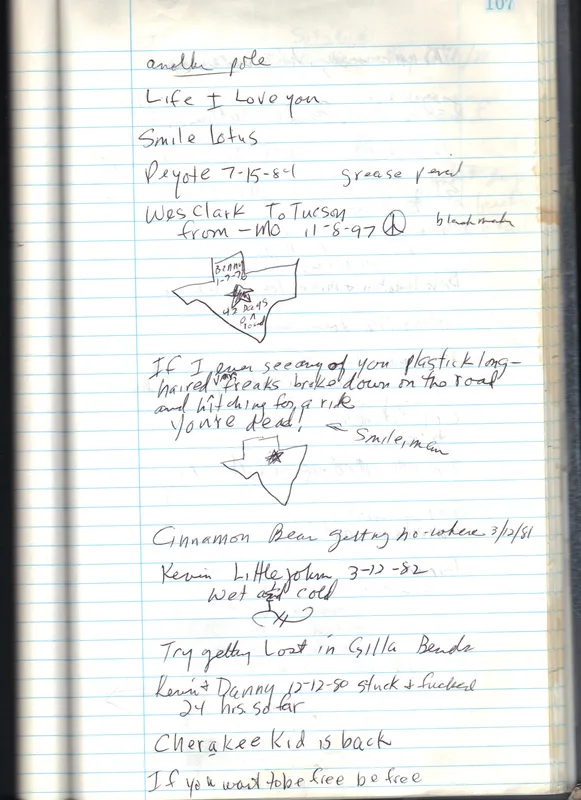 107
another pole
Life I Love you
Smile Lotus
Peyote 7-15-84 grease pencil
Wes Clark To Tucson
from - MO 11-8-97 black mark
Benny
1-7-76
42 Days
on
road
If I ever see any of you plastick long-
haired freaks broke down on the road
and hitching for a ride
You're dead! ← Smile, man
Cinnamon Bear getting no-where 3/12/81
Kevin Littlejohn 3-12-82
Wet and cold
Try getting Lost in Gilla Bends
Kevin + Danny 12-12-80 stuck + fucked
24 hrs. so far
Cherakee Kid is back
If you want to be free be free